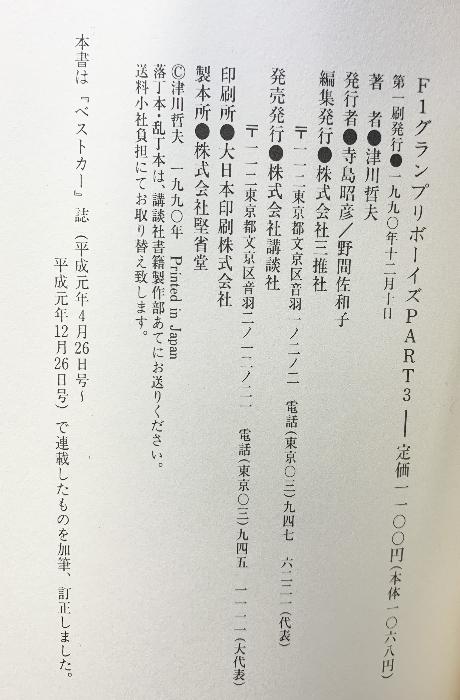 F1グランプリボーイズPART3──定価一一〇〇円(本体一〇六八円)
第一刷発行●一九九〇年十二月十日
著　者●津川哲夫
発行者●寺島昭彦／野間佐和子
編集発行●株式会社三推社
〒一一二東京都文京区音羽一ノ二ノ二　電話(東京〇三)九四七　六二二一(代表)
発売発行●株式会社講談社
〒一一二東京都文京区音羽二ノ一二ノ二一　電話(東京〇三)九四五　一一一一(大代表)
印刷所●大日本印刷株式会社
製本所●株式会社堅省堂
©津川哲夫　一九九〇年　Printed in Japan
落丁本・乱丁本は、講談社書籍製作部あてにお送りください。
送料小社負担にてお取り替え致します。
本書は『ベストカー』誌(平成元年4月26日号～
平成元年12月26日号)で連載したものを加筆、訂正しました。